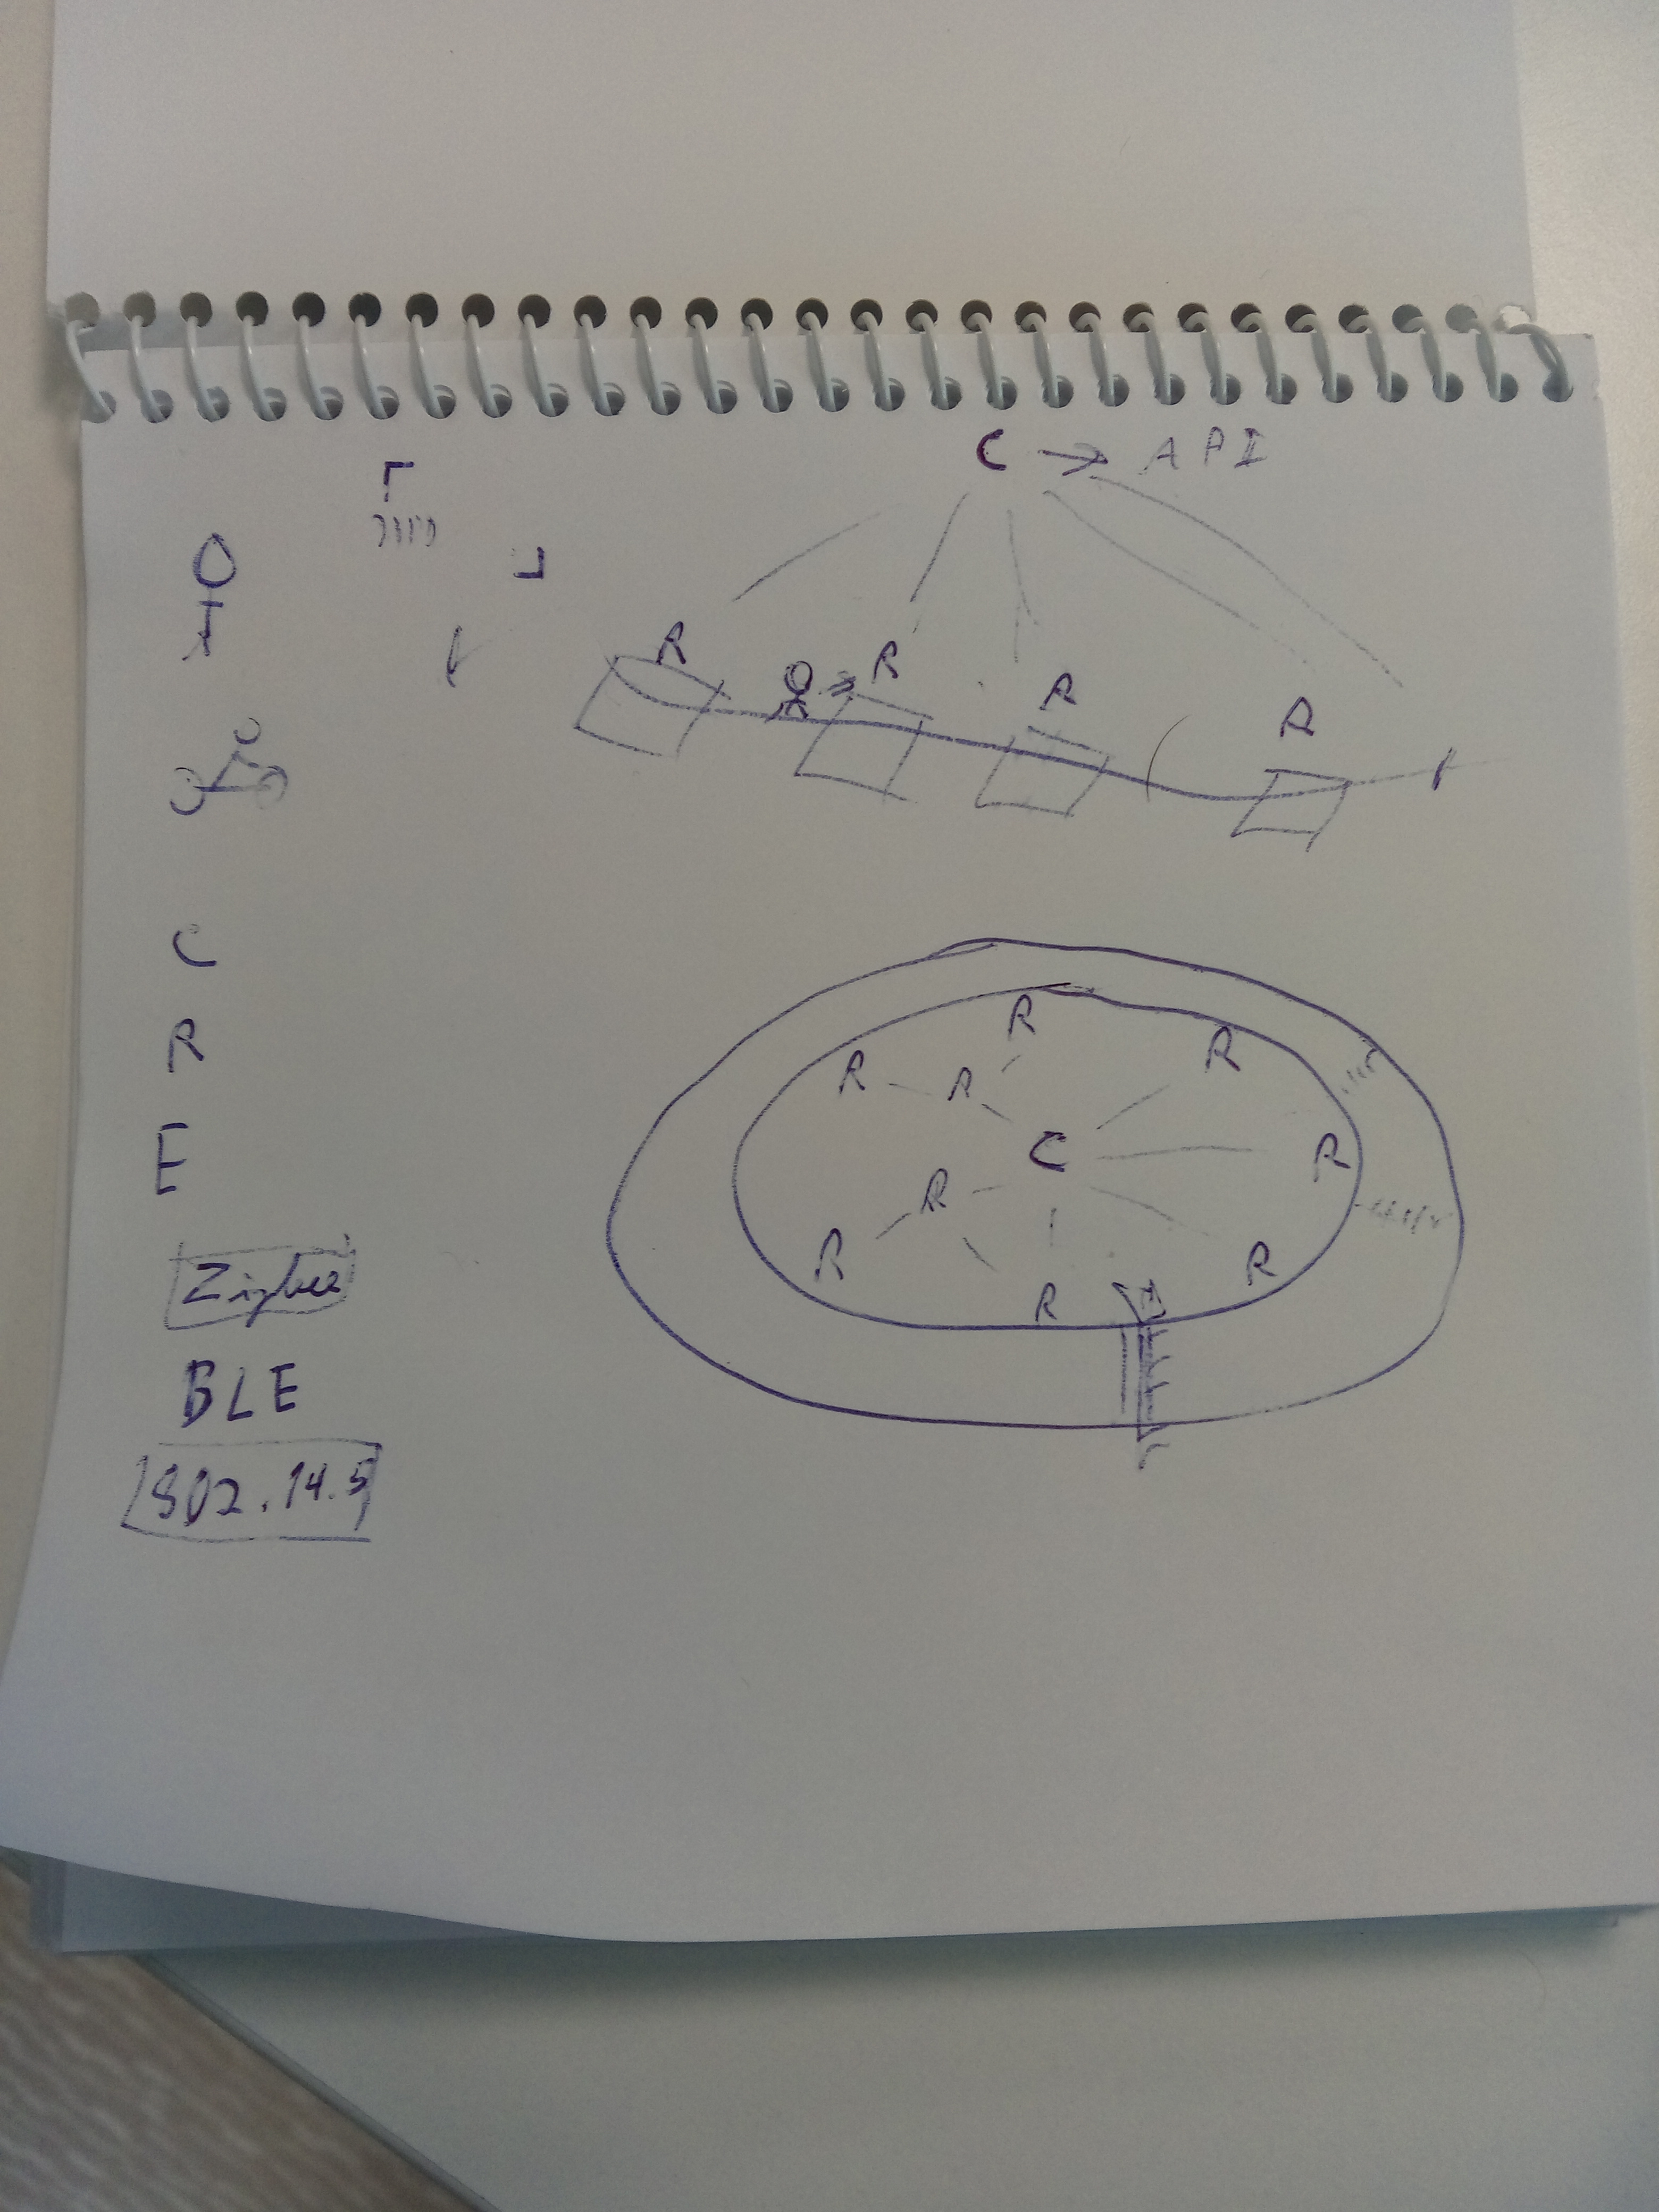 C → API
R
R
R
R
C
R
E
Zigbee
BLE
802.14.5
R
R
R
R
C
R
R
R
R
R